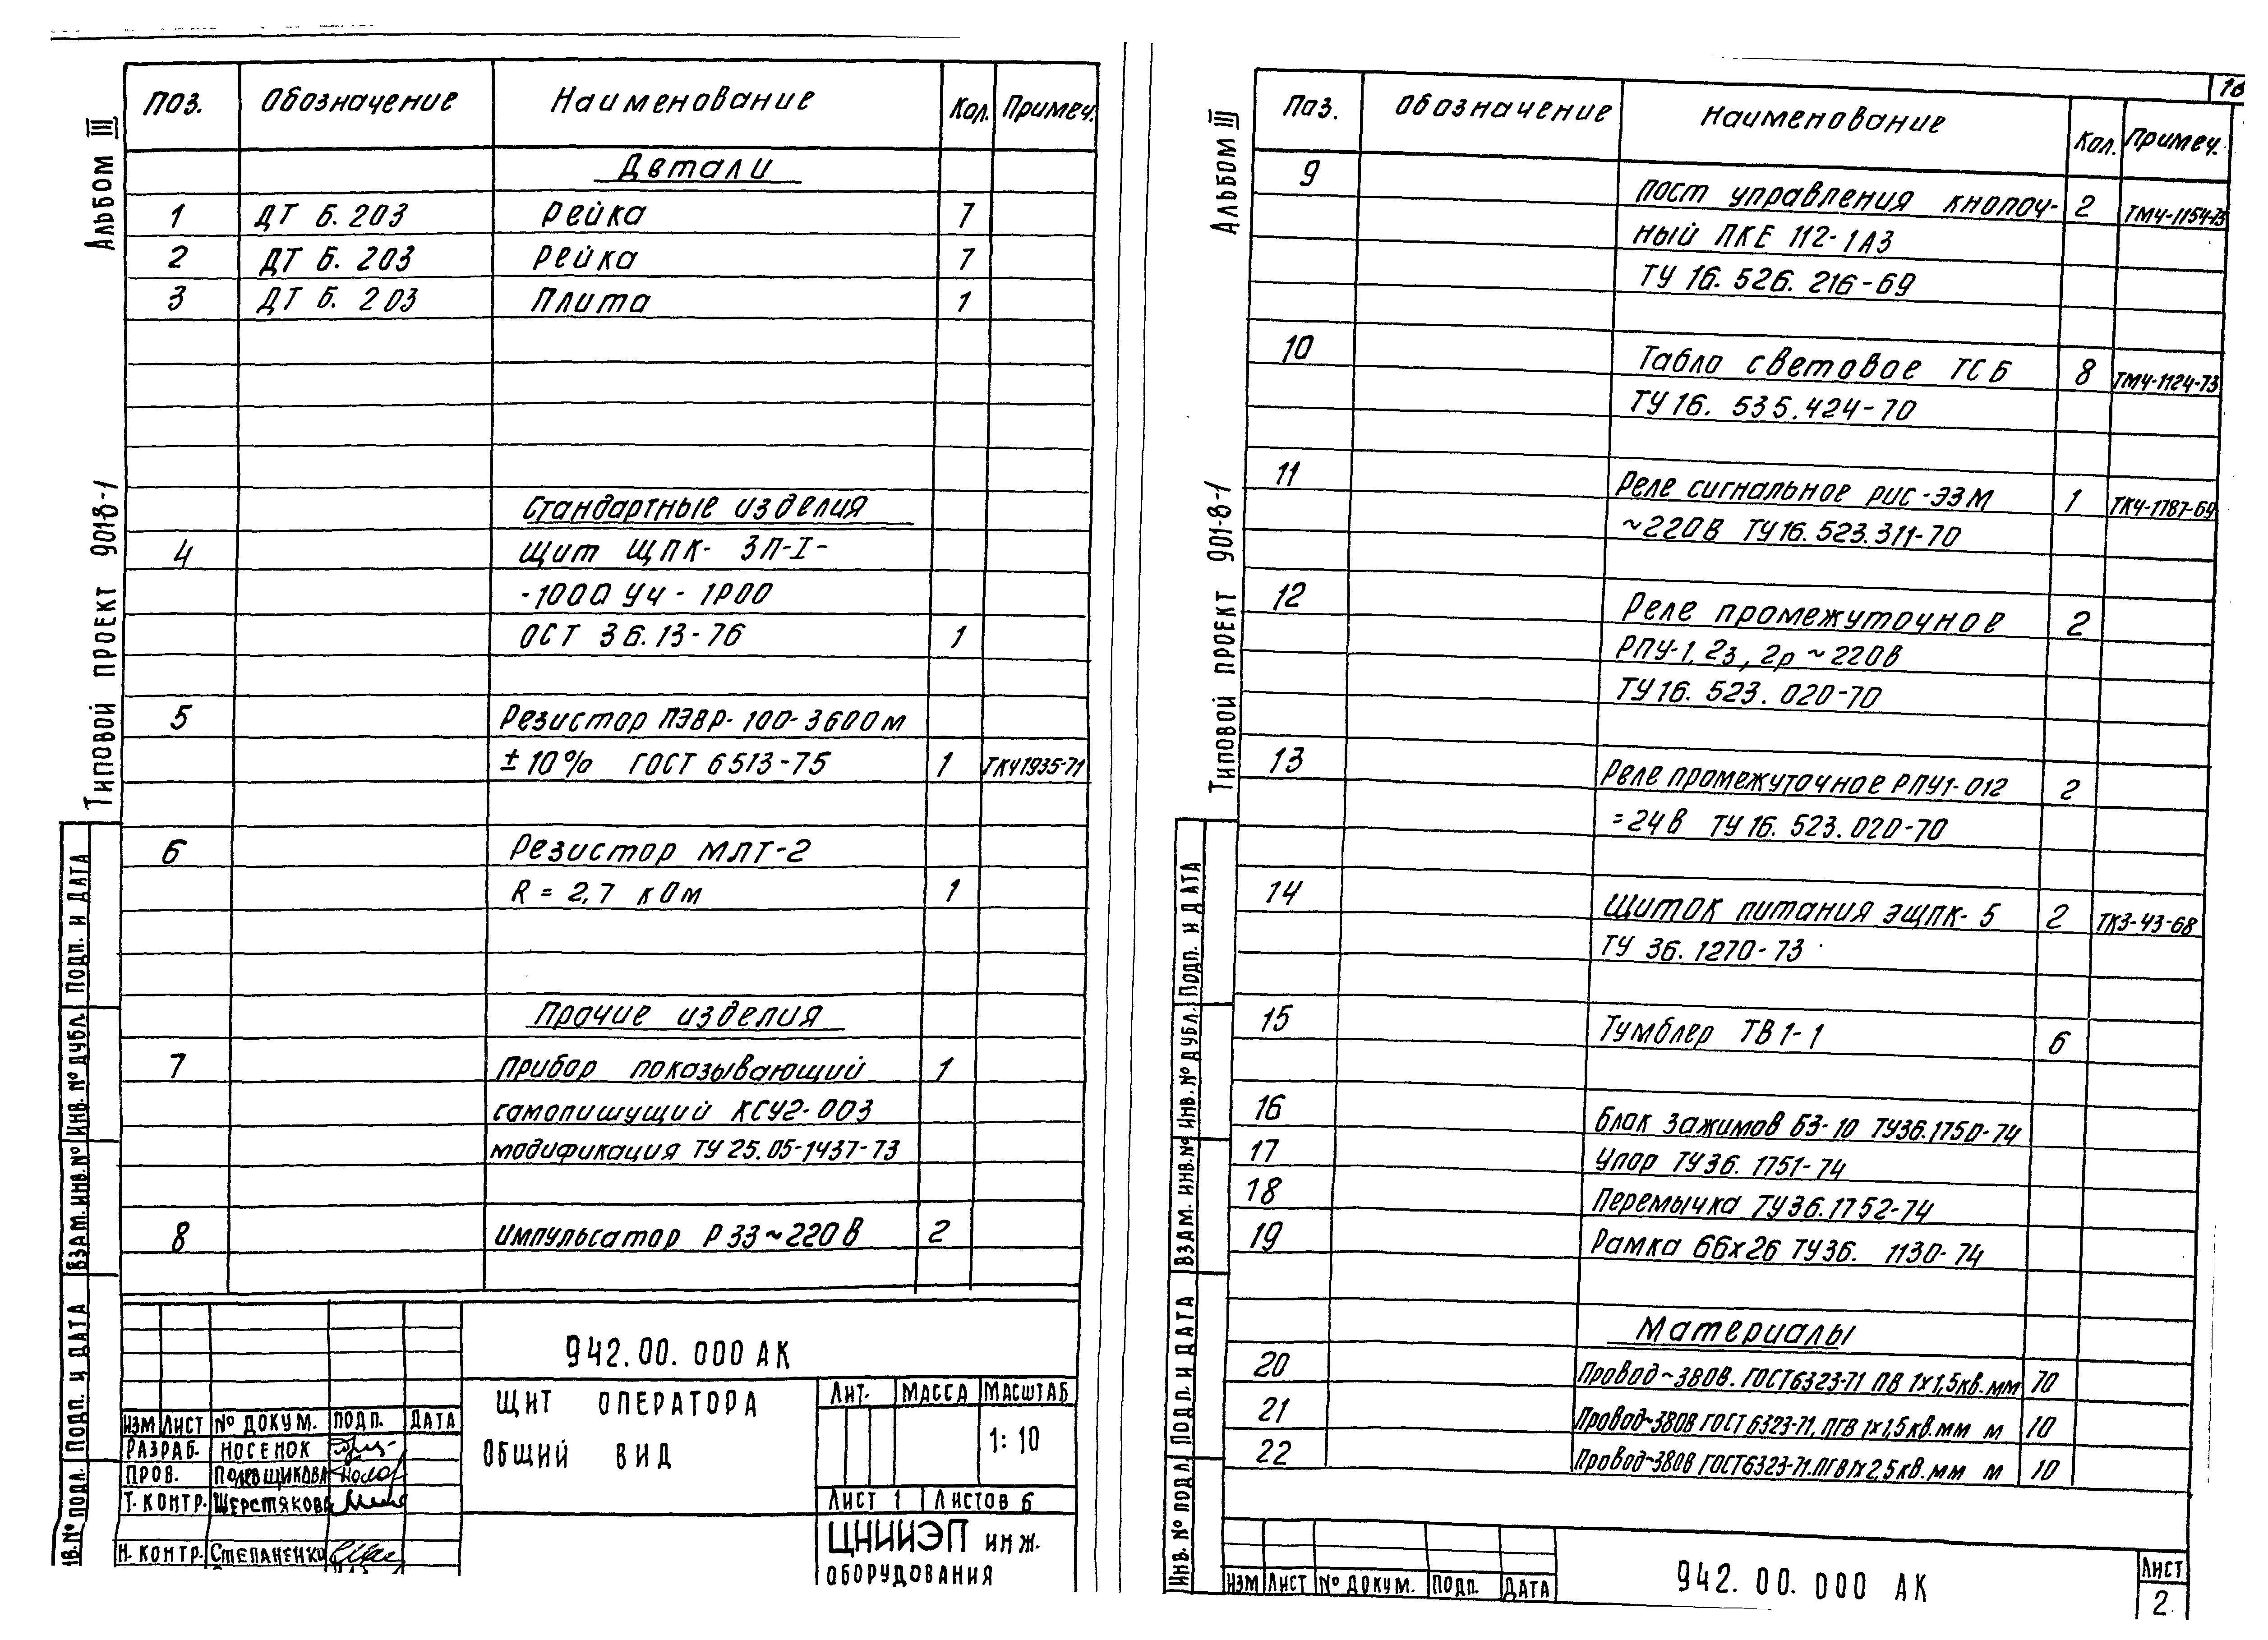 Альбом III
Типовой проект 901-8-1
Поз. Обозначение Наименование Кол. Примеч.
Детали
1 ДТ Б. 203 Рейка 7
2 ДТ Б. 203 Рейка 7
3 ДТ Б. 203 Плита 1
Стандартные изделия
4 Щит ЩПК- 3П-I-
-1000 УЧ - 1Р00
ОСТ 36.13-76 1
5 Резистор ПЭВР-100-360Ом
±10% ГОСТ 6513-75 1 ТК41935-71
6 Резистор МЛТ-2
R = 2,7 кОм 1
Прочие изделия
7 Прибор показывающий 1
самопишущий КСУ2-003
модификация ТУ 25.05-1437-73
8 Импульсатор Р 33 ~ 220 В 2
942.00.000 АК
ЩИТ ОПЕРАТОРА
ОБЩИЙ ВИД
ЛИТ. МАССА МАСШТАБ
1:10
ЛИСТ 1 ЛИСТОВ 6
ЦНИИЭП инж.
ОБОРУДОВАНИЯ
ИЗМ ЛИСТ № ДОКУМ. ПОДП. ДАТА
РАЗРАБ. НОСЕНОК
ПРОВ. ПОЛЕВЩИКОВА
Т. КОНТР. ШЕРСТЯКОВА
Н. КОНТР. СТЕПАНЕНКО
ПОДП. И ДАТА
ИНВ. № ДУБЛ.
ВЗАМ. ИНВ. №
ПОДП. И ДАТА
ИНВ. № ПОДЛ.
Альбом III
Типовой проект 901-8-1
Поз. Обозначение Наименование Кол. Примеч.
9 Пост управления кнопоч- 2 ТМ4-1154-73
ный ПКЕ 112-1А3
ТУ 16. 526. 216-69
10 Табло световое ТСБ 8 ТМ4-1124-73
ТУ 16. 535.424-70
11 Реле сигнальное РИС-ЭЗМ 1 ТК4-1787-69
~220В ТУ16.523.311-70
12 Реле промежуточное 2
РПУ-1, 2з, 2р ~220В
ТУ16. 523. 020-70
13 Реле промежуточное РПУ1-012 2
=24В ТУ16. 523.020-70
14 Щиток питания ЭЩПК-5 2 ТК3-43-68
ТУ 36.1270-73
15 Тумблер ТВ1-1 6
16 Блок зажимов БЗ-10 ТУ36.1750-74
17 Упор ТУ36.1751-74
18 Перемычка ТУ36.1752-74
19 Рамка 66х26 ТУ36. 1130-74
Материалы
20 Провод~380В. ГОСТ6323-71 ПВ 1х1,5кв.мм 70
21 Провод~380В ГОСТ 6323-71, ПГВ 1х1,5кв.мм м 10
22 Провод~380В ГОСТ6323-71.ПГВ1х2,5кв.мм м 10
ИЗМ ЛИСТ № ДОКУМ. ПОДП. ДАТА
942.00.000 АК
ЛИСТ
2
ПОДП. И ДАТА
ИНВ. № ДУБЛ.
ВЗАМ. ИНВ. №
ПОДП. И ДАТА
ИНВ. № ПОДЛ.